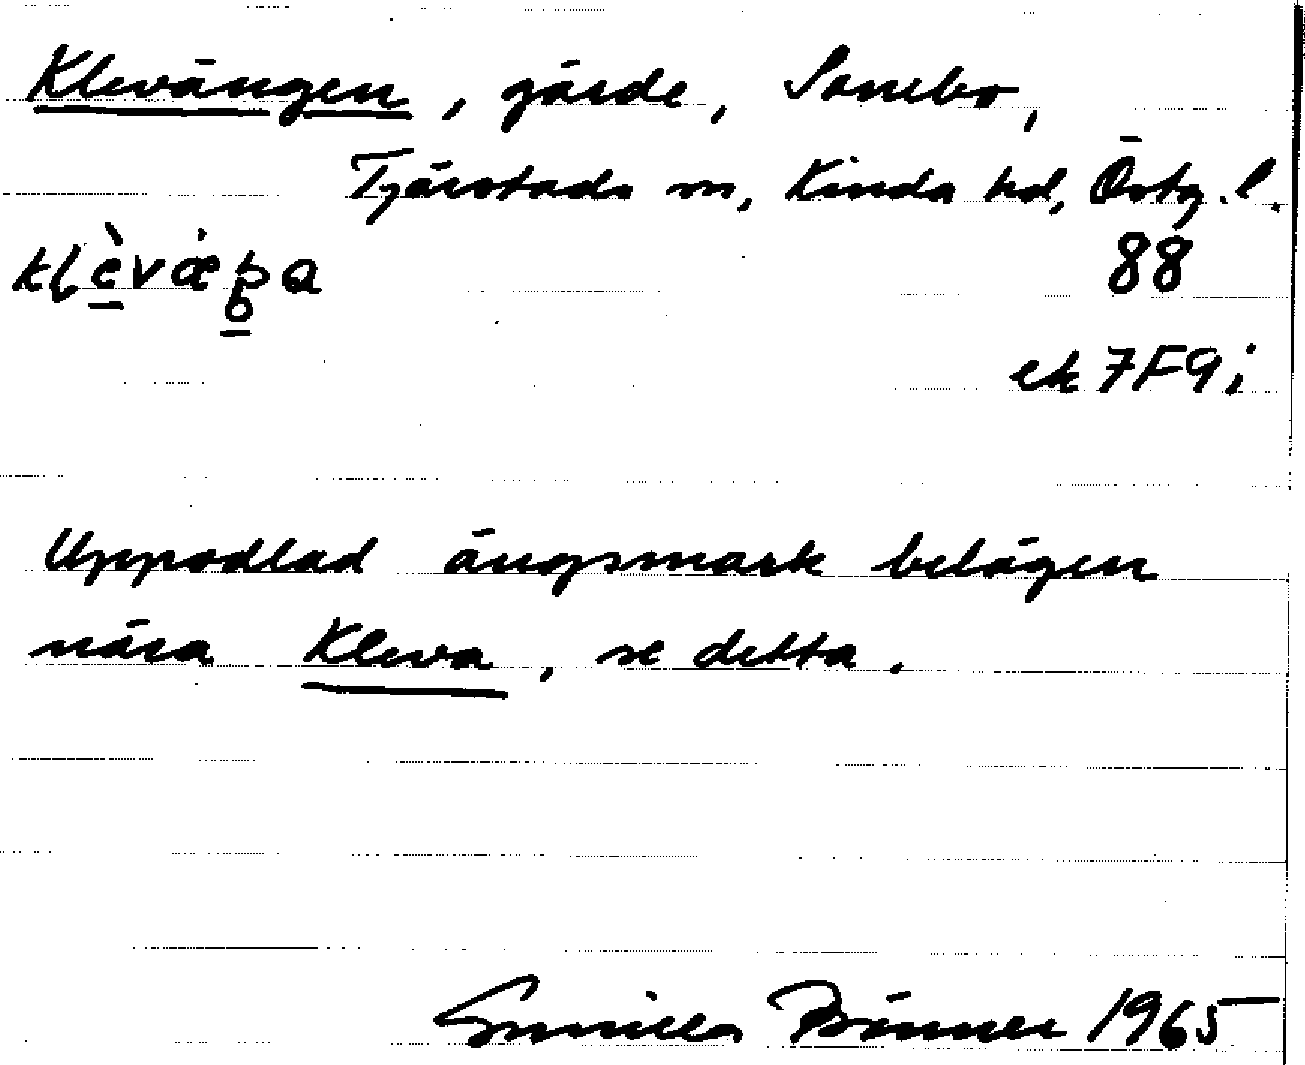 Klevängen, gärde, Sanebo,
Tjärstads sn, Kinda hd, Östg. l.
88
ek 7F9i
Uppodlad ängsmark belägen
nära Kleva, se detta.
Gunilla 1965